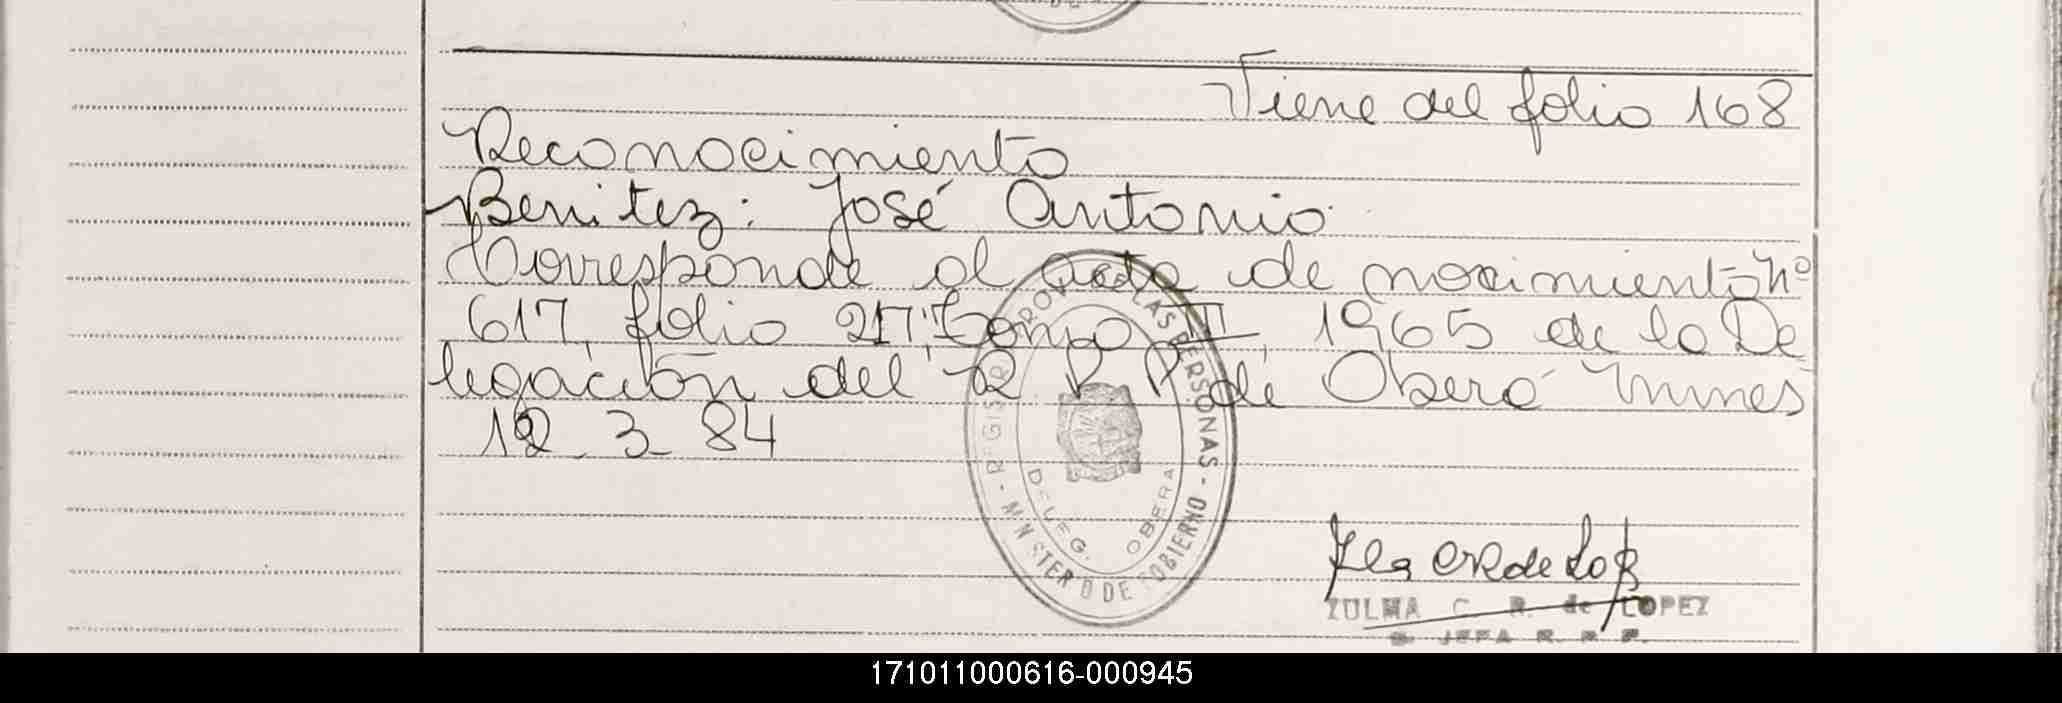 Viene del folio 168
Reconocimiento
Benitez: José Antonio
Corresponde al acta de nacimiento Nº
617, folio 217, Tomo II, 1965 de la De
legación del R P P de Oberá Mnes
12_3_84
REGISTRO PROV. LAS PERSONAS - MINISTERIO DE GOBIERNO -
DELEG. OBERA
ZULMA C. R. de LOPEZ
JEFA R. P. P.
171011000616-000945